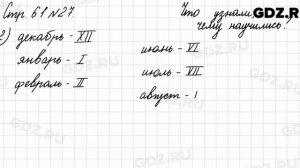 Стр 61 №27
Что узнали,
чему научились?
2) декабрь - XII
январь - I
февраль - II
июнь - VI
июль - VII
август - I
GDZ.RU
GDZ.RU